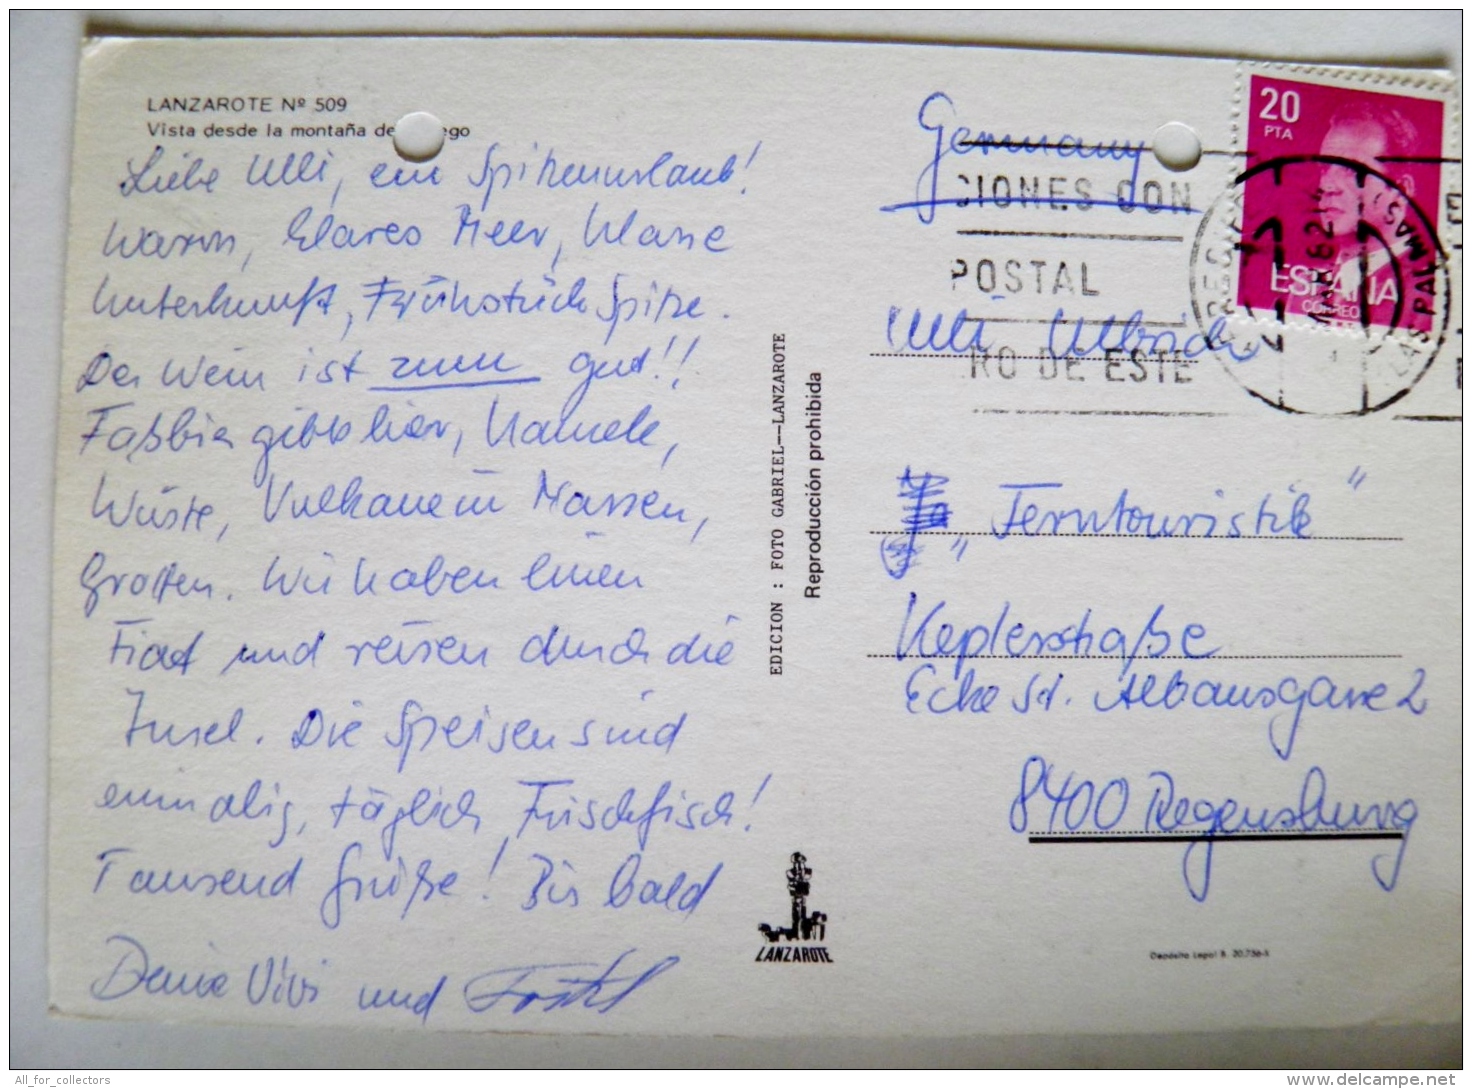 LANZAROTE Nº 509
Vista desde la montaña de ego
Liebe Ulli, ein Spitzenurlaub!
Warm, klares Meer, klasse
Unterkunft, Frühstück Spitze.
Der Wein ist zum gut!!
Faßbier gibts hier, Kamele,
Wüste, Vulkane in Massen,
Grotten. Wir haben einen
Fiat und reisen durch die
Insel. Die Speisen sind
einmalig, täglich Frischfisch!
Tausend Grüße! Bis bald
Deine Vivi und
EDICION : FOTO GABRIEL--LANZAROTE
Reproducción prohibida
LANZAROTE
Germany
CIONES CON
POSTAL
RO DE ESTE
20
PTA
ESPAÑA
CORREOS
LAS PALMAS
Ulli Ulbrich
„Ferntouristik"
Keplerstraße
Ecke St. Albansgasse 2
8400 Regensburg
Depósito Legal B. 20.756-X
All_for_collectors
www.delcampe.net